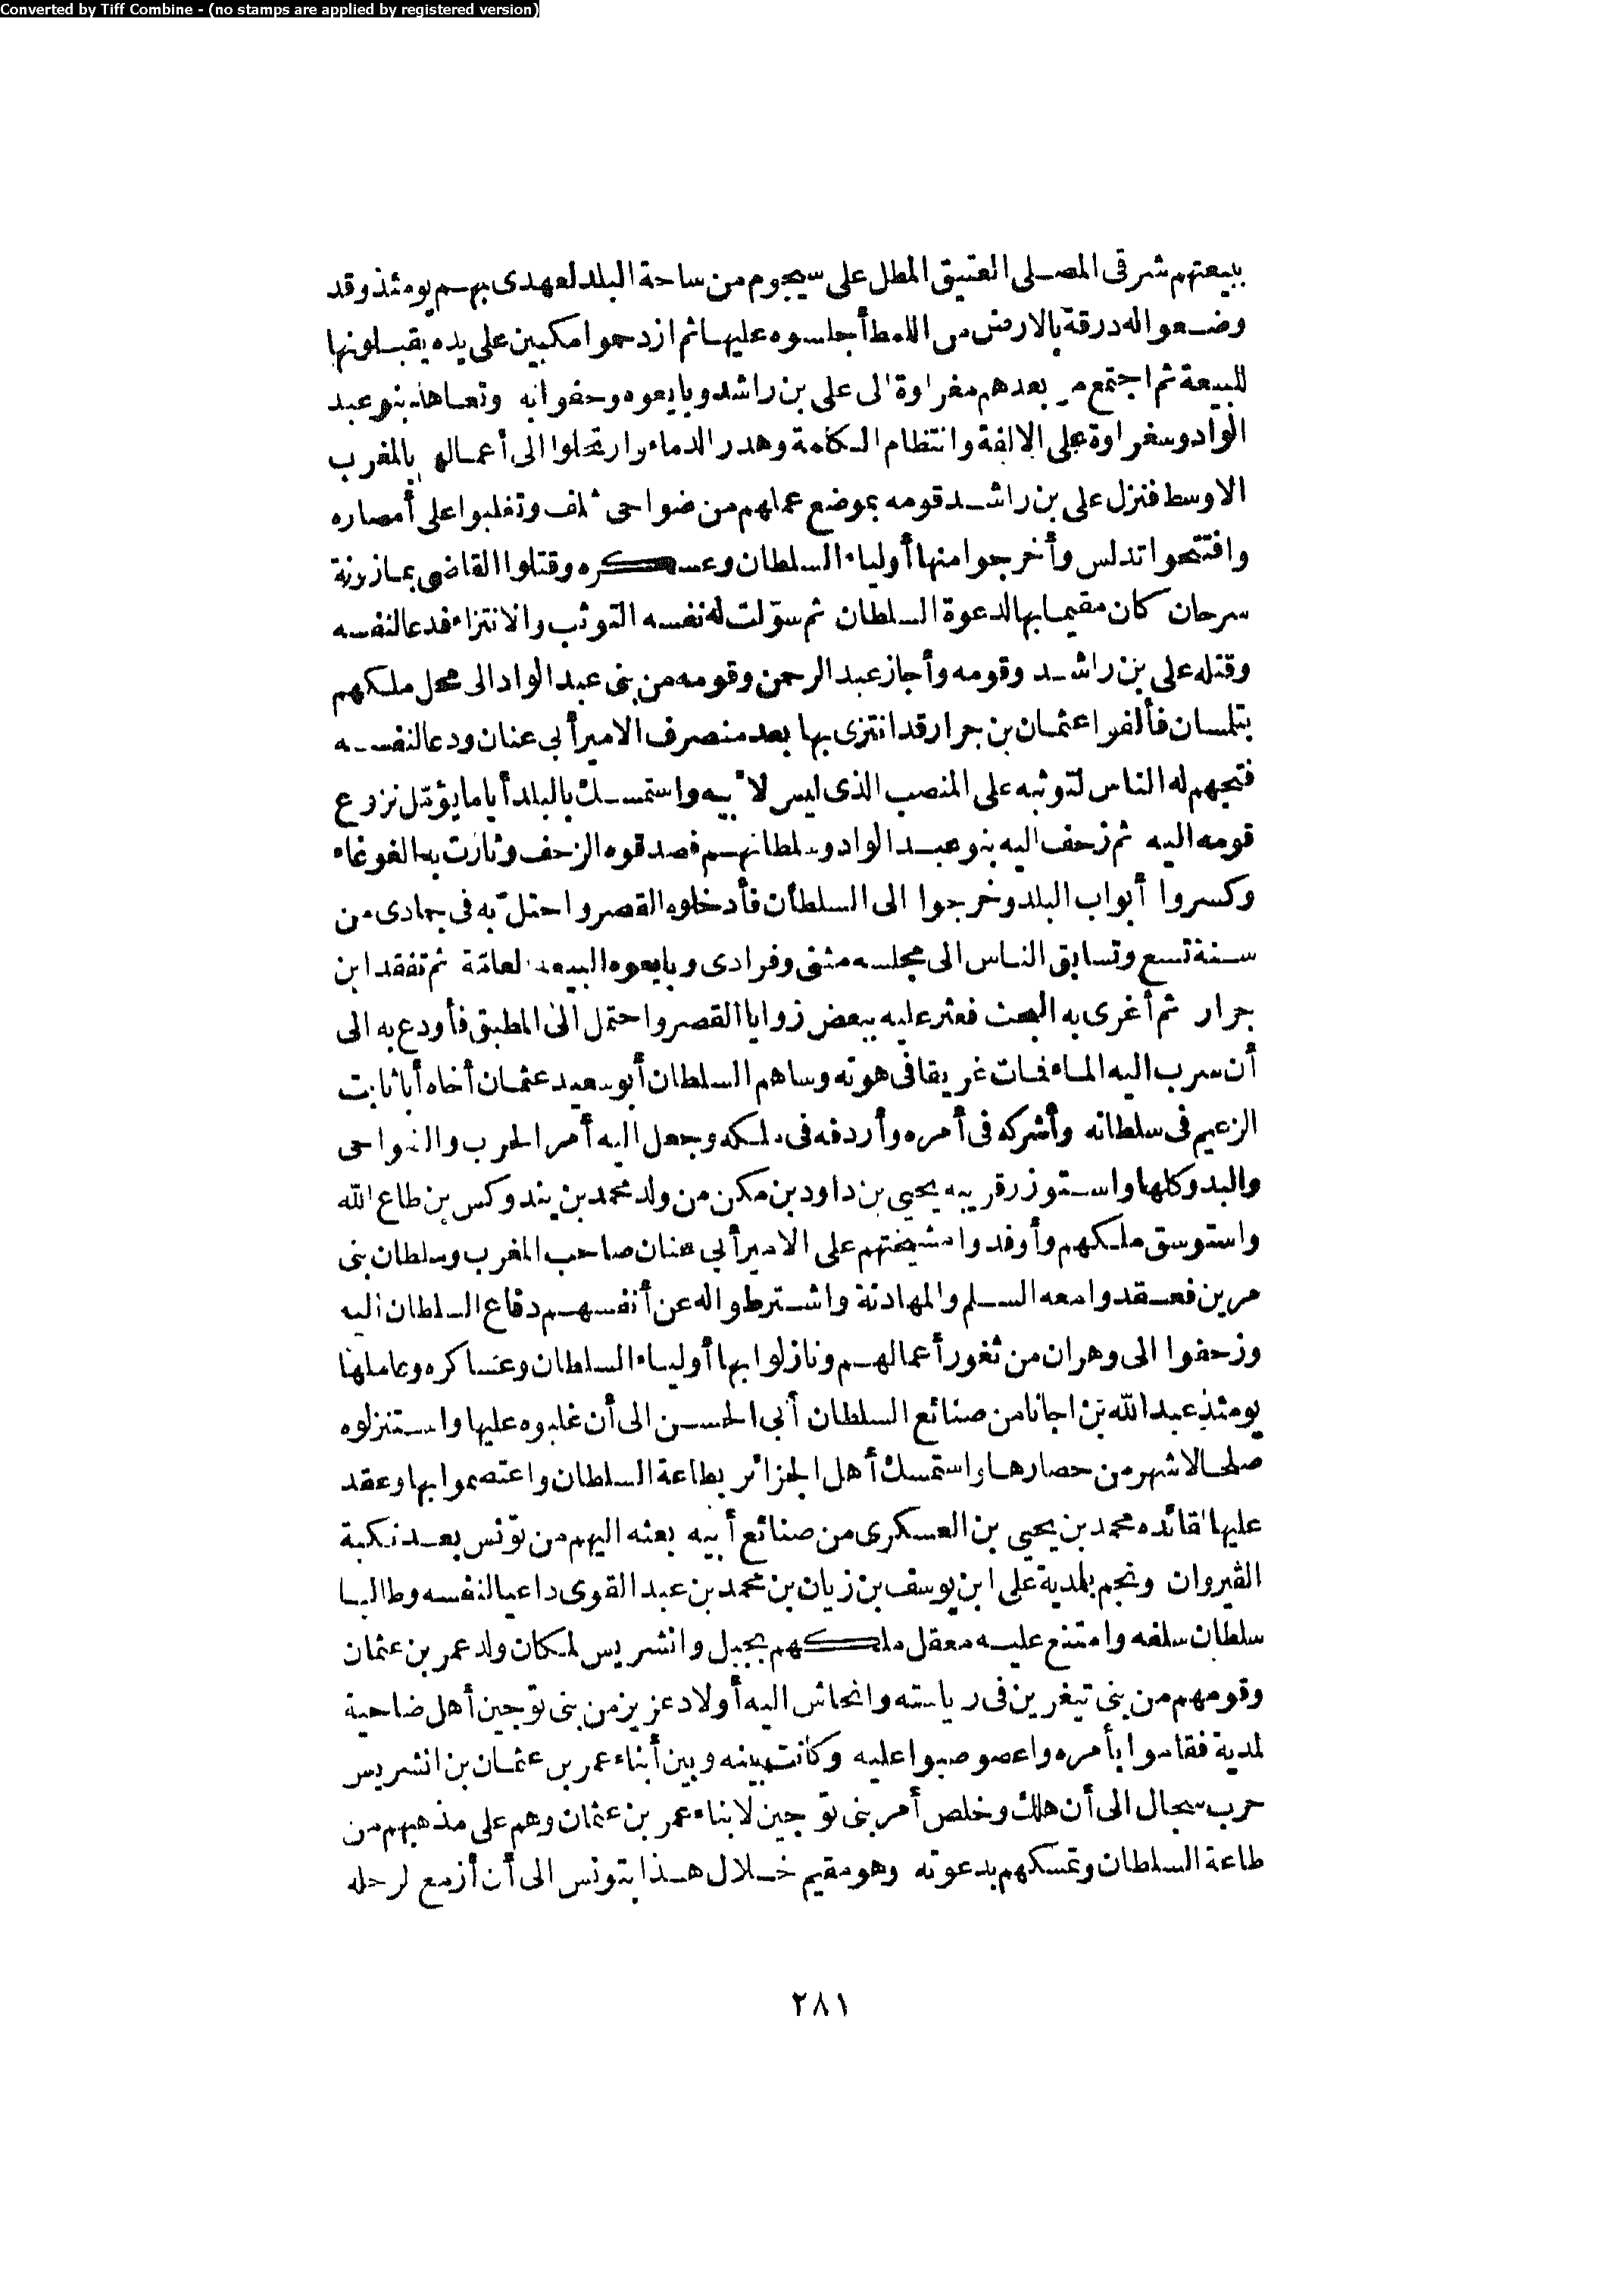 Converted by Tiff Combine - (no stamps are applied by registered version)
ببيعتهم شرقى المصلى العتيق المطل على سيجوم من ساحة البلد لعهدى بهم يومئذ وقد
وضعوا له درقة بالارض من اللمط أجلسوه عليها ثم ازدحموا مكبين على يده يقبلونها
للبيعة ثم اجتمع من بعدهم مغراوة الى على بن راشد وبايعوه وحفوا به وتعاهد بنو عبد
الواد ومغراوة على الالفة وانتظام الكلمة وهدر الدماء وارتحلوا الى أعمالهم بالمغرب
الاوسط فنزل على بن راشد وقومه بموضع عملهم من ضواحى شلف وتغلبوا على أمصاره
وافتتحوا تدلس وأخرجوا منها أولياء السلطان وعسكره وقتلوا القاضى بمازونة
سرحان كان مقيما بها لدعوة السلطان ثم سوّلت له نفسه التوثب والانتزاء فدعا لنفسه
وقتله على بن راشد وقومه وأجاز عبد الرحمن وقومه من بنى عبد الواد الى محل ملكهم
بتلمسان فألفوا عثمان بن جرار قد انتزى بها بعد منصرف الامير أبى عنان ودعا لنفسه
فتجهم له الناس لتوثبه على المنصب الذى ليس لأبيه واستمسك بالبلد أياما يؤمّل نزوع
قومه اليه ثم زحف اليه بنو عبد الواد وسلطانهم فصدقوه الزحف وثارت به الغوغاء
وكسروا أبواب البلد وخرجوا الى السلطان فأدخلوه القصر واحتلّ به فى جمادى من
سنة تسع وتسابق الناس الى مجلسه مثنى وفرادى وبايعوه البيعة العامّة ثم تفقد ابن
جرار ثم أغرى به البحث فعثر عليه ببعض زوايا القصر واحتمل الى المطبق فأودع به الى
أن سرب اليه الماء فمات غريقا فى هوته وساهم السلطان أبو سعيد عثمان أخاه أبا ثابت
الزعيم فى سلطانه وأشركه فى أمره وأردفه فى ملكه وجعل اليه أمر الحرب والنواحى
والبدو كلها واستوزر قريبه يحيى بن داود بن مكن من ولد محمد بن يندوكس بن طاع الله
واستوسق ملكهم وأوفدوا مشيختهم على الامير أبى عنان صاحب المغرب وسلطان بنى
مرين فعقدوا معه السلم والمهادنة واشترطوا له عن أنفسهم دفاع السلطان اليه
وزحفوا الى وهران من ثغور أعمالهم ونازلوا بها أولياء السلطان وعساكره وعاملها
يومئذ عبد الله بن اجانا من صنائع السلطان أبى الحسن الى أن غلبوه عليها واستنزلوه
صلحا لاشهر من حصارها واستمسك أهل الجزائر بطاعة السلطان واعتصموا بها وعقد
عليها قائده محمد بن يحيى بن العسكرى من صنائع أبيه بعثه اليهم من تونس بعد نكبة
القيروان ونجم بلمدية على ابن يوسف بن زيان بن محمد بن عبد القوى داعيا لنفسه وطالبا
سلطان سلفه وامتنع عليه معقل ملكهم بجبل وانشريس لمكان ولد عمر بن عثمان
وقومهم من بنى تيغرين فى رياسته وانحاش اليه أولاد عزيز من بنى توجين أهل ضاحية
لمدية فقاموا بأمره واعصوصبوا عليه وكانت بينه وبين أبناء عمر بن عثمان بن انشريس
حرب سجال الى أن هلك وخلص أمر بنى توجين لابناء عمر بن عثمان وهم على مذهبهم من
طاعة السلطان وتمسكهم بدعوته وهو مقيم خلال هذا بتونس الى أن أزمع لرحله
٢٨١